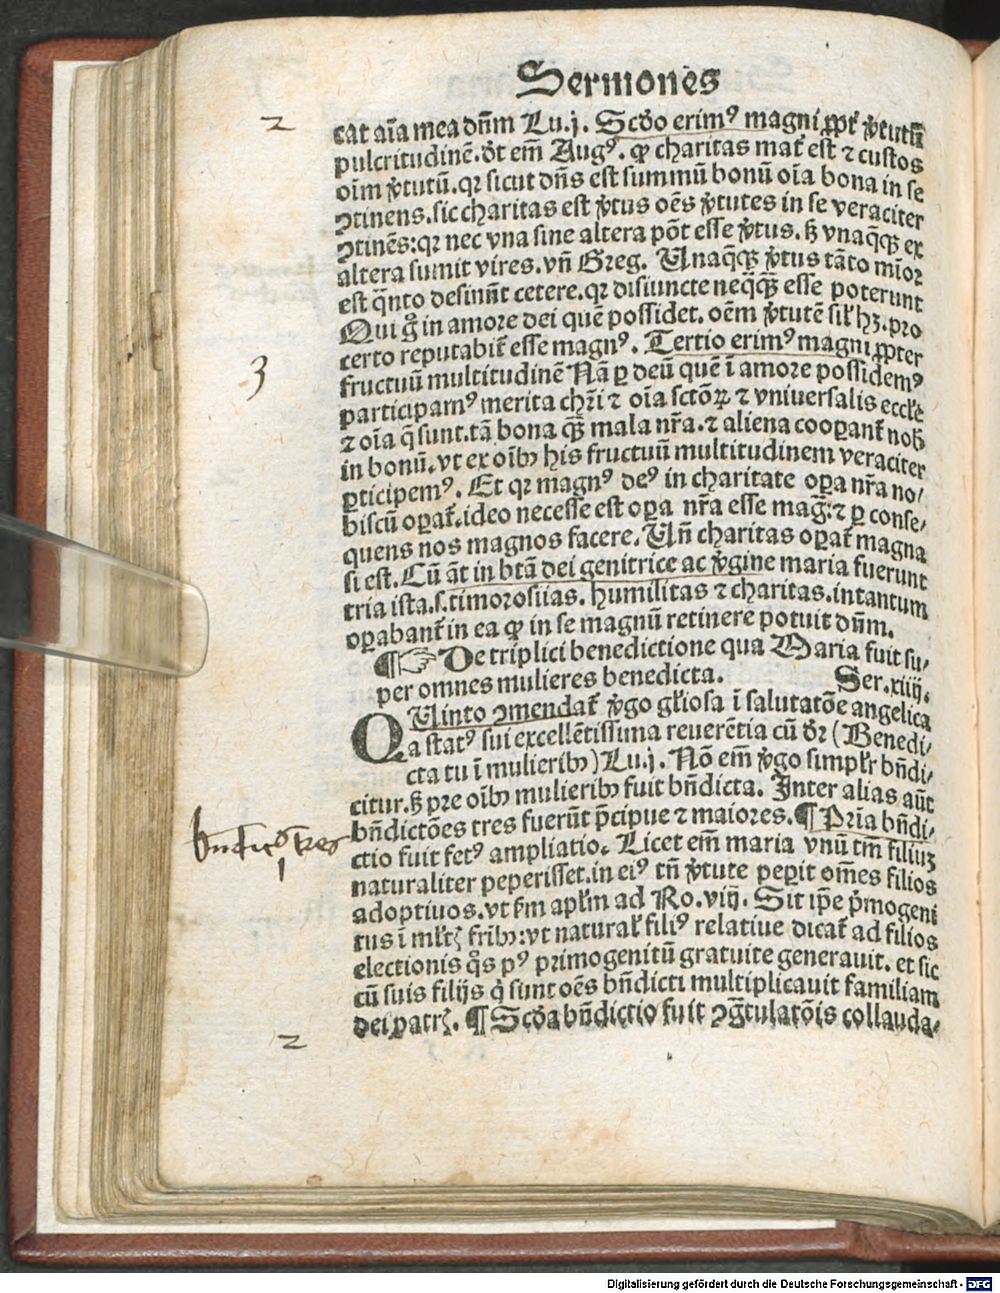 Sermones
2
cat aīa mea dn̄m Lu.j. Scd̓o erimꝰ magni ꝓpt̓ v̓tutū
pulcritudinē. vt em̄ Augꝰ. ꝙ charitas mat̓ est ⁊ custos
oīm v̓tutū. qꝛ sicut dn̄s est summū bonū oīa bona in se
ꝯtinens. sic charitas est v̓tus oēs v̓tutes in se veraciter
ꝯtinēs: qꝛ nec vna sine altera pōt esse v̓tus. ꝫ vnaq̄qꝫ ex
altera sumit vires. vn̄ Greg. Unaq̄qꝫ v̓tus tāto mīoꝛ
est q̄nto desinūt cetere. qꝛ disiuncte neq̄qꝫ esse poterunt
Qui g̊ in amore dei quē possidet. oēm v̓tutē sil̓ hꝫ. pro
certo reputabit̓ esse magnꝰ. Tertio erimꝰ magni ꝓpter
3
fructuū multitudinē Nā ꝑ deū quē ī amore possidemꝰ
participamꝰ merita chr̄i ⁊ oīa sctōꝝ ⁊ vniuersalis eccl̓e
⁊ oīa q̄ sunt. tā bona qꝫ mala nr̄a. ⁊ aliena cooꝑant̓ nob̓
in bonū. vt ex oīb⁹ his fructuū multitudinem veraciter
ꝑticipemꝰ. Et qꝛ magnꝰ deꝰ in charitate oꝑa nr̄a no/
biscū oꝑat̓. ideo necesse est oꝑa nr̄a esse mag̓: ⁊ ꝑ conse/
quens nos magnos facere. Un̄ charitas oꝑat̓ magna
si est. Cū āt in btā dei genitrice ac v̓gine maria fuerunt
tria ista. s. timorositas. humilitas ⁊ charitas. intantum
oꝑabant̓ in ea ꝙ in se magnū retinere potuit dn̄m.
¶ ☞ De triplici benedictione qua Maria fuit su/
per omnes mulieres benedicta. Ser.xiiij.
QUinto ꝯmendat̓ v̓go gl̓iosa ī salutatōe angelica
a statꝰ sui excellētissima reuerētia cū d̓r (Benedi/
cta tu ī mulierib⁹) Lu.j. Nō em̄ v̓go simpl̓r bn̄di/
citur. ꝫ pre oīb⁹ mulierib⁹ fuit bn̄dicta. Inter alias aūt
bn̄dictōes tres
1
bn̄dictōes tres fuerūt p̄cipue ⁊ maiores. ¶ Pr̄ia bn̄di/
ctio fuit fetꝰ ampliatio. Licet em̄ maria vnū tm̄ filiuꝫ
naturaliter peperisset. in eiꝰ tn̄ v̓tute peꝑit om̄es filios
adoptiuos. vt ẜm apl̓m ad Ro.viij. Sit ip̄e p̓mogeni
tus ī ml̓tꝭ frīb⁹: vt natural̓ filiꝰ relatiue dicat̓ ad filios
electionis q̊s pꝰ primogenitū gratuite generauit. et sic
cū suis filijs q̓ sunt oēs bn̄dicti multiplicauit familiam
2
dei patrꝭ. ¶ Scd̓a bn̄dictio fuit ꝯg̓tulatōis collauda/
Digitalisierung gefördert durch die Deutsche Forschungsgemeinschaft - DFG